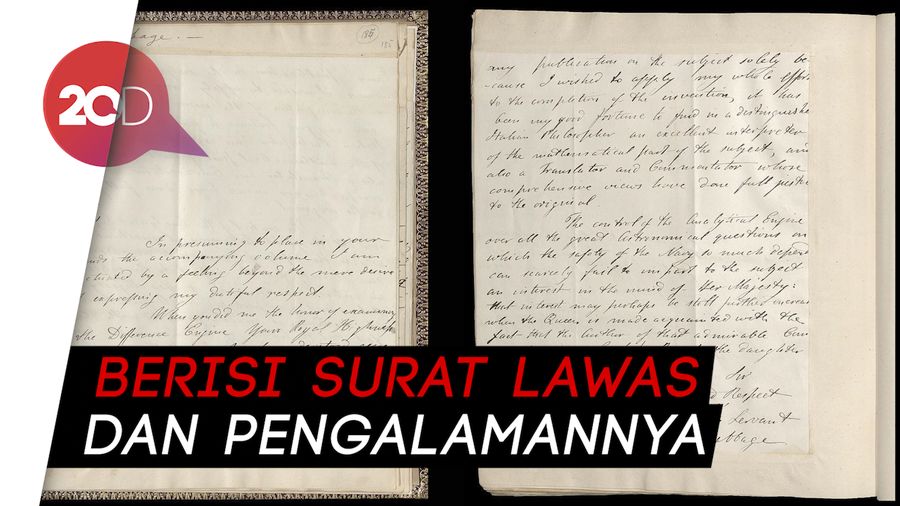 20D
age. —
185
185
In presuming to place in your
the accompanying volume I am
by a feeling beyond the mere desire
expressing my dutiful respect.
When you did me the honor of examining
the Difference Engine Your Royal Highness
my publication on the subject solely be-
cause I wished to apply my whole efforts
to the completion of the invention, it has
been my good fortune to find in a distinguished
Italian Philosopher an excellent interpreter
of the mathematical part of the subject, and
also a Translator and Commentator whose
comprehensive views have done full justice
to the original.
The control of the Analytical Engine
over all the great Astronomical questions on
which the safety of the Navy so much depend
can scarcely fail to impart to the subject
an interest in the mind of Her Majesty:
that interest may perhaps be still further increased
when the Queen is made acquainted with the
fact that the author of that admirable
the daughter
Sir
Respect
Servant
BERISI SURAT LAWAS
DAN PENGALAMANNYA